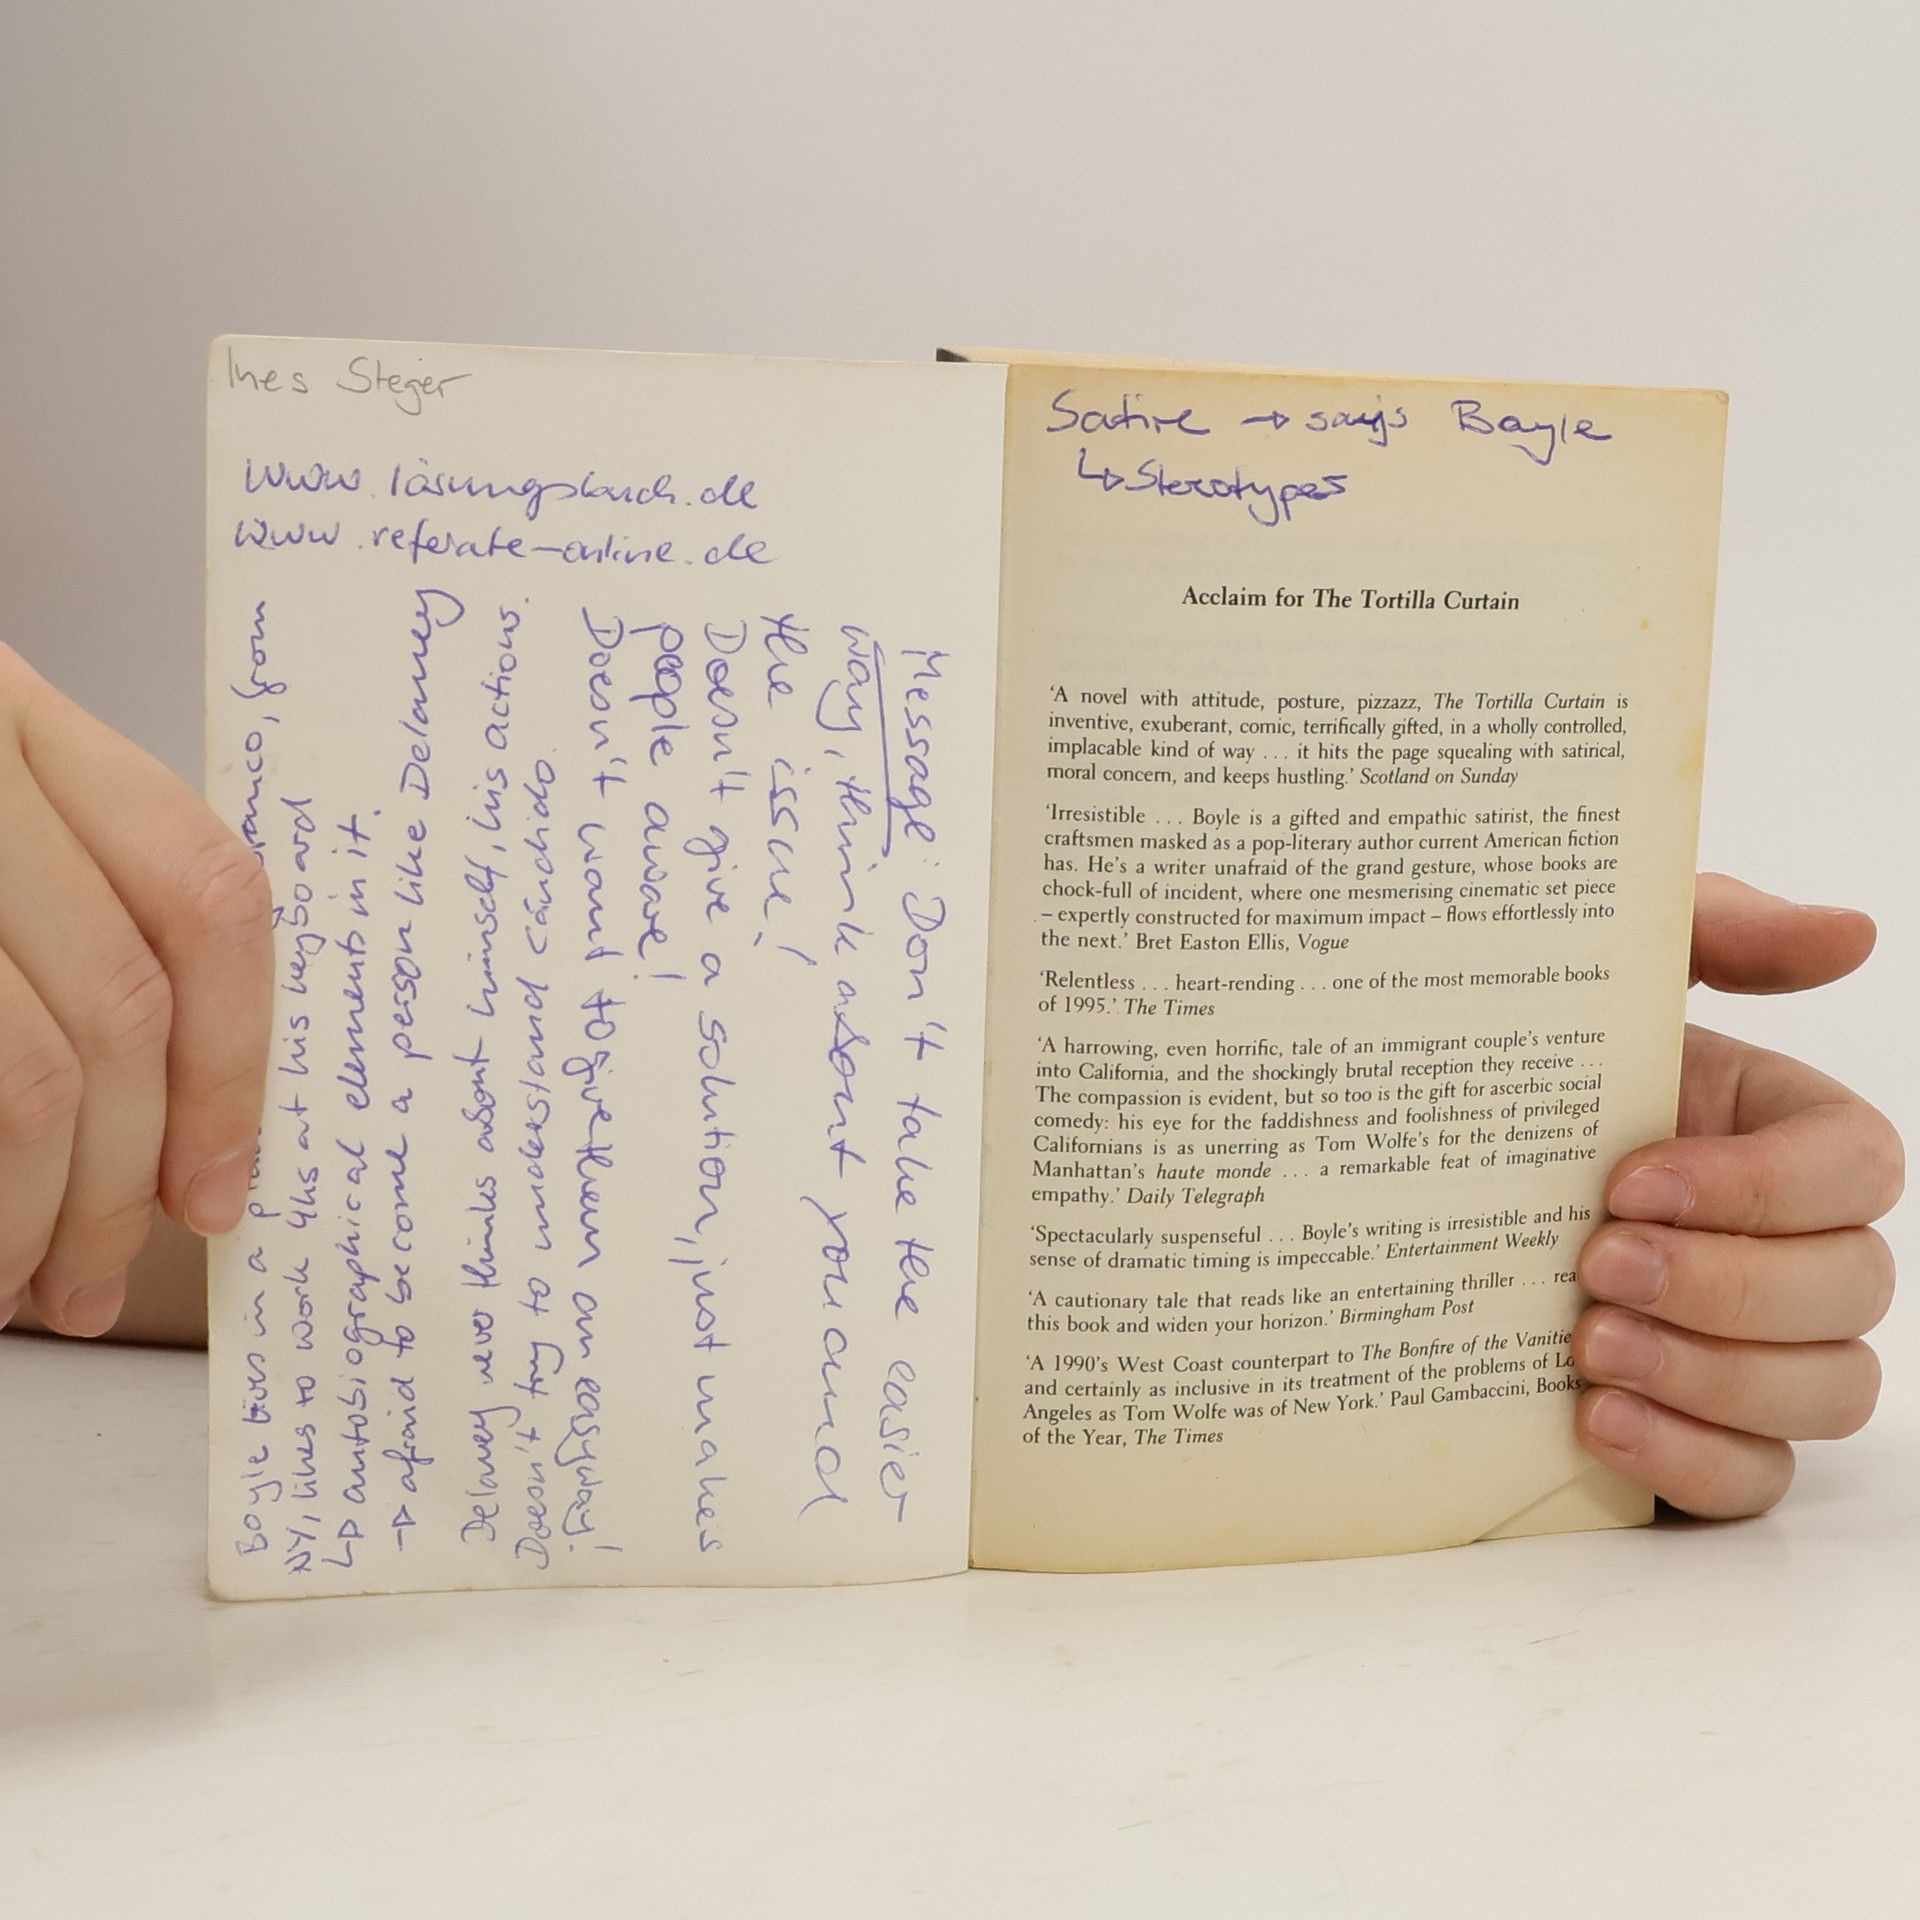 Ines Steger
www.lösungsbuch.de
www.referate-online.de
Boyle lives in a , from
NY, likes to work 4hs at his keyboard
↳ autobiographical elements in it.
→ afraid to become a person like Delaney
Delaney never thinks about himself, his actions.
Doesn't try to understand Cándido.
Doesn't want to
!
people aware!
Doesn't give a solution, just makes
the issue!
way, think about you and
Message: Don't take the easier
Satire → says Boyle
↳ Sterotypes
Acclaim for The Tortilla Curtain
‘A novel with attitude, posture, pizzazz, The Tortilla Curtain is
inventive, exuberant, comic, terrifically gifted, in a wholly controlled,
implacable kind of way . . . it hits the page squealing with satirical,
moral concern, and keeps hustling.’ Scotland on Sunday
‘Irresistible . . . Boyle is a gifted and empathic satirist, the finest
craftsmen masked as a pop-literary author current American fiction
has. He’s a writer unafraid of the grand gesture, whose books are
chock-full of incident, where one mesmerising cinematic set piece
– expertly constructed for maximum impact – flows effortlessly into
the next.’ Bret Easton Ellis, Vogue
‘Relentless . . . heart-rending . . . one of the most memorable books
of 1995.’ The Times
‘A harrowing, even horrific, tale of an immigrant couple’s venture
into California, and the shockingly brutal reception they receive . . .
The compassion is evident, but so too is the gift for ascerbic social
comedy: his eye for the faddishness and foolishness of privileged
Californians is as unerring as Tom Wolfe’s for the denizens of
Manhattan’s haute monde . . . a remarkable feat of imaginative
empathy.’ Daily Telegraph
‘Spectacularly suspenseful . . . Boyle’s writing is irresistible and his
sense of dramatic timing is impeccable.’ Entertainment Weekly
‘A cautionary tale that reads like an entertaining thriller . . . rea
this book and widen your horizon.’ Birmingham Post
‘A 1990’s West Coast counterpart to The Bonfire of the Vanitie
and certainly as inclusive in its treatment of the problems of Lo
Angeles as Tom Wolfe was of New York.’ Paul Gambaccini, Books
of the Year, The Times